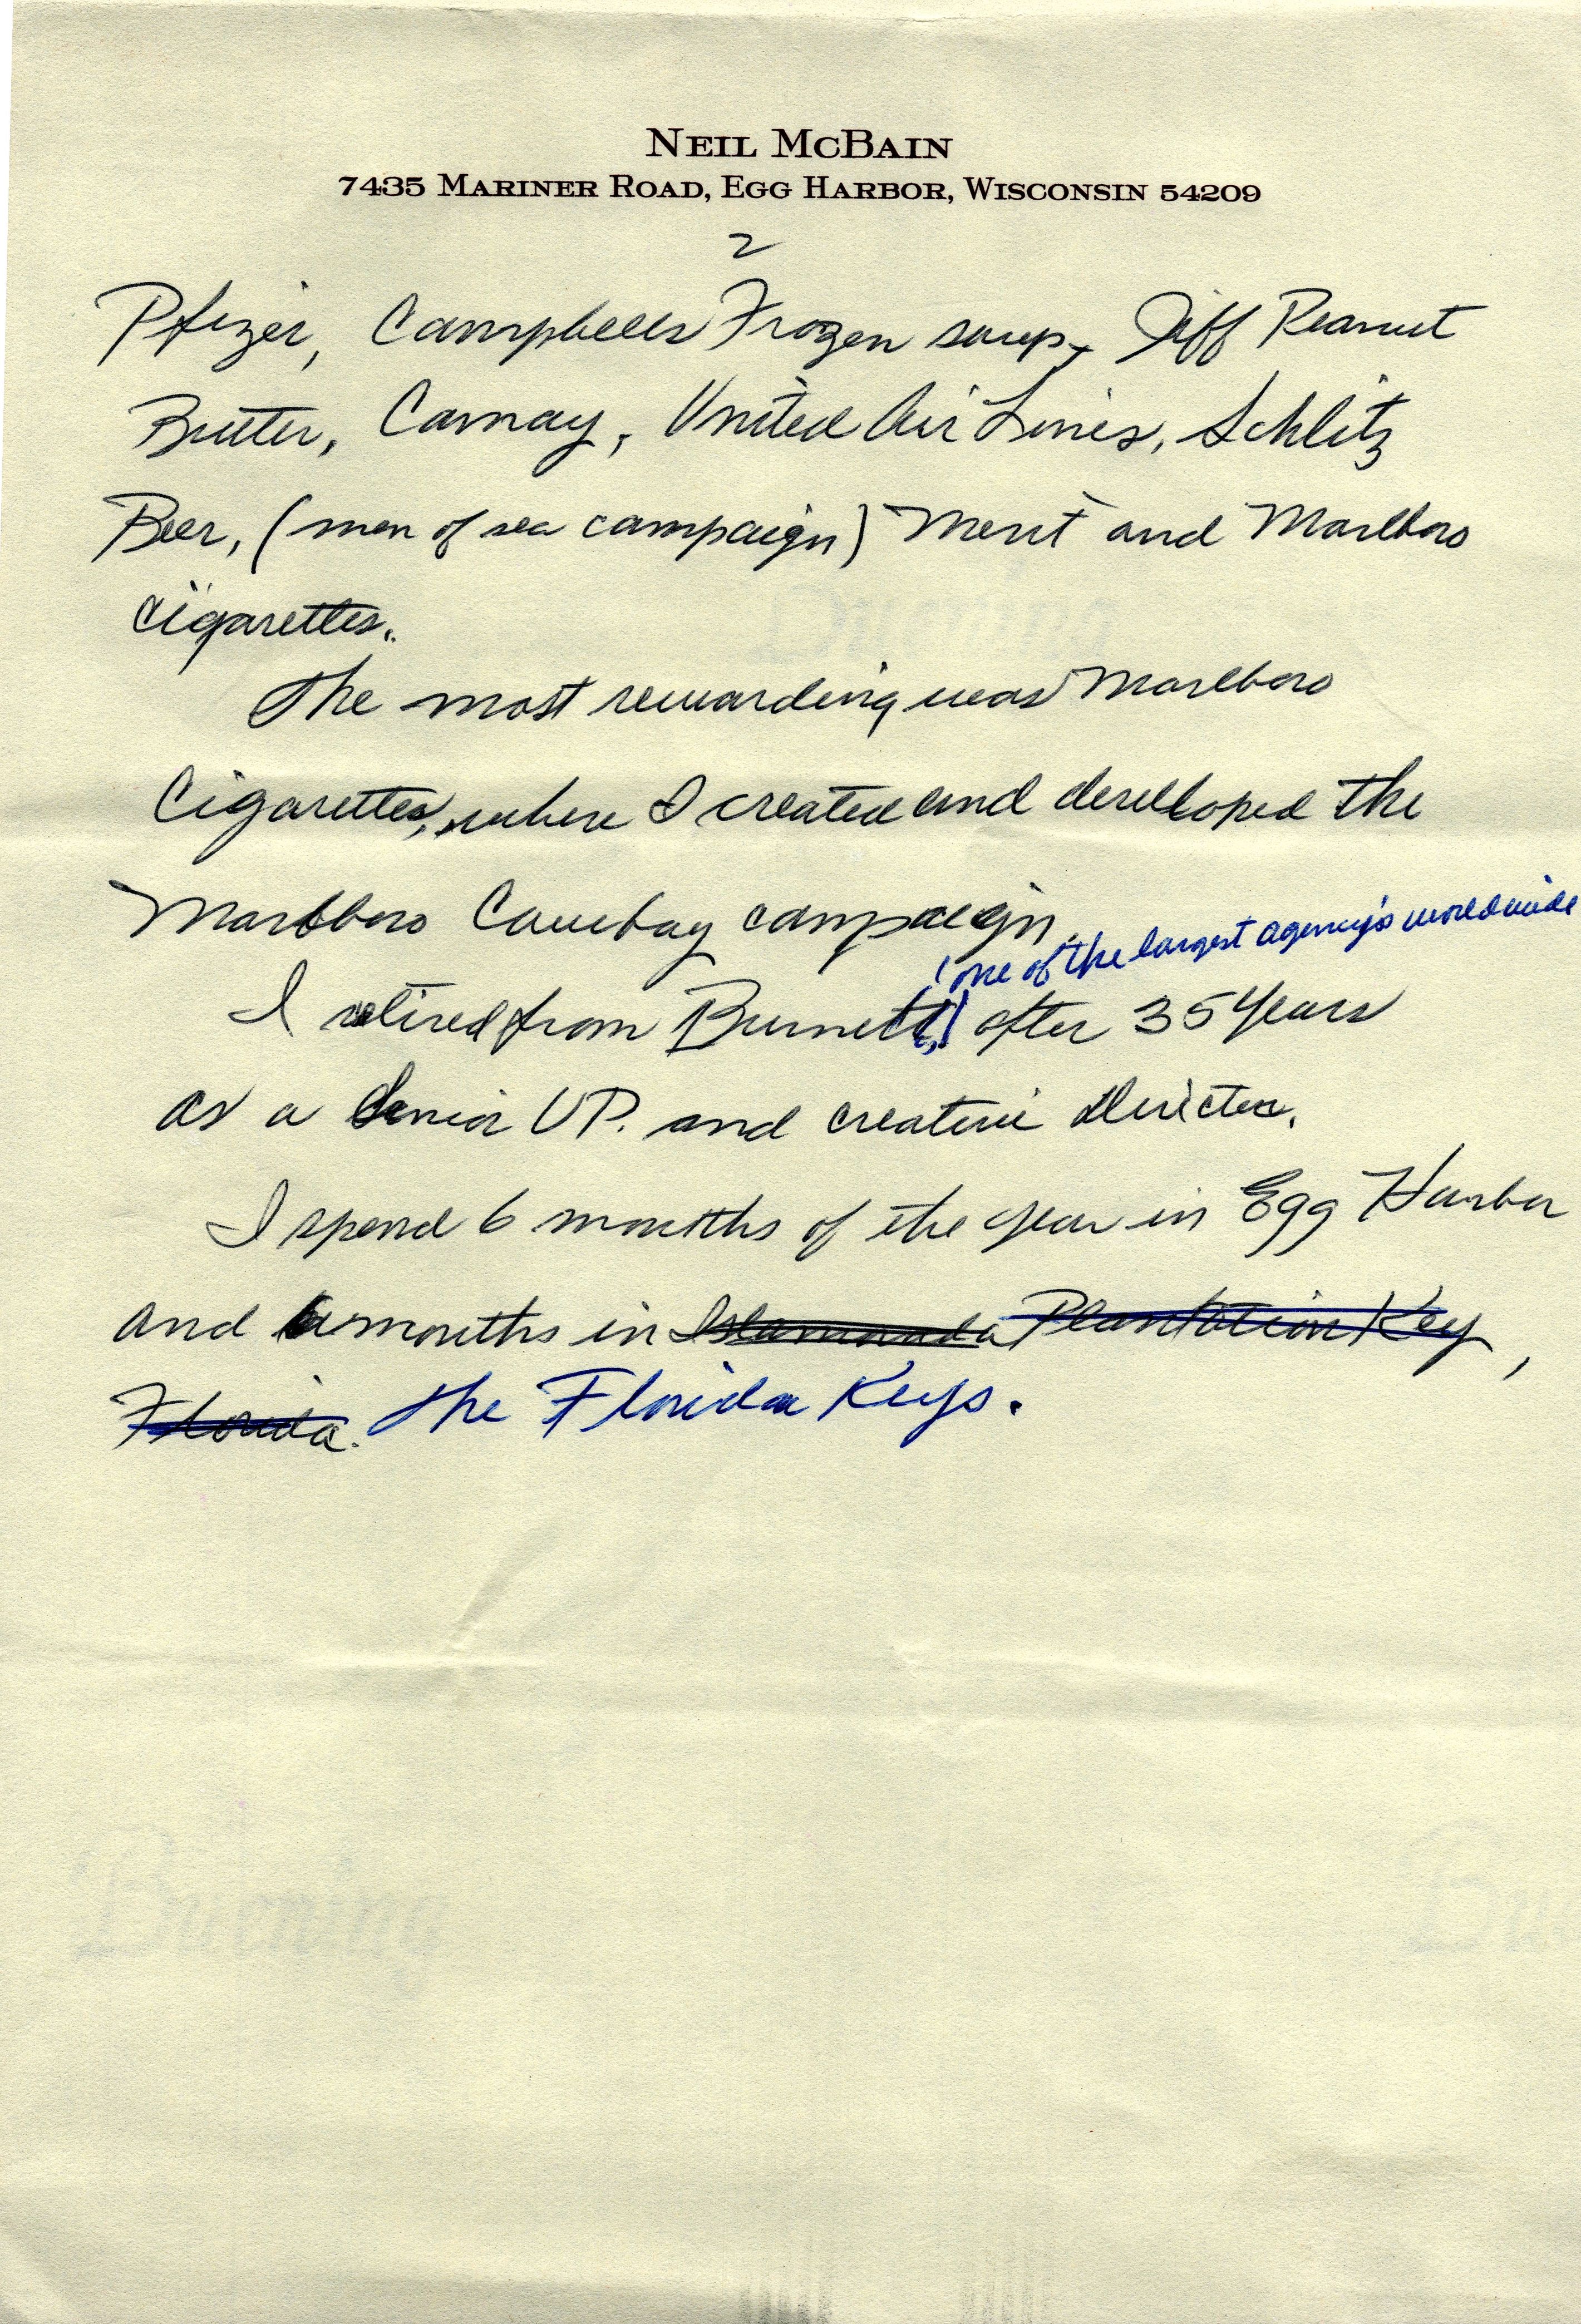 NEIL MCBAIN
7435 MARINER ROAD, EGG HARBOR, WISCONSIN 54209
2
Pfizer, Campbells Frozen soup, Jiff Peanut
Butter, Camay, United Air Lines, Schlitz
Beer, (men of sea campaign) Merit and Marlboro
cigarettes.
The most rewarding was Marlboro
Cigarettes, where I created and developed the
Marlboro Cowboy campaign.
(one of the largest agency's worldwide
I retired from Burnett,) after 35 years
as a Senior VP. and creative director.
I spend 6 months of the year in Egg Harbor
and 6 months in Islamorada Plantation Key,
Florida. the Florida Keys.